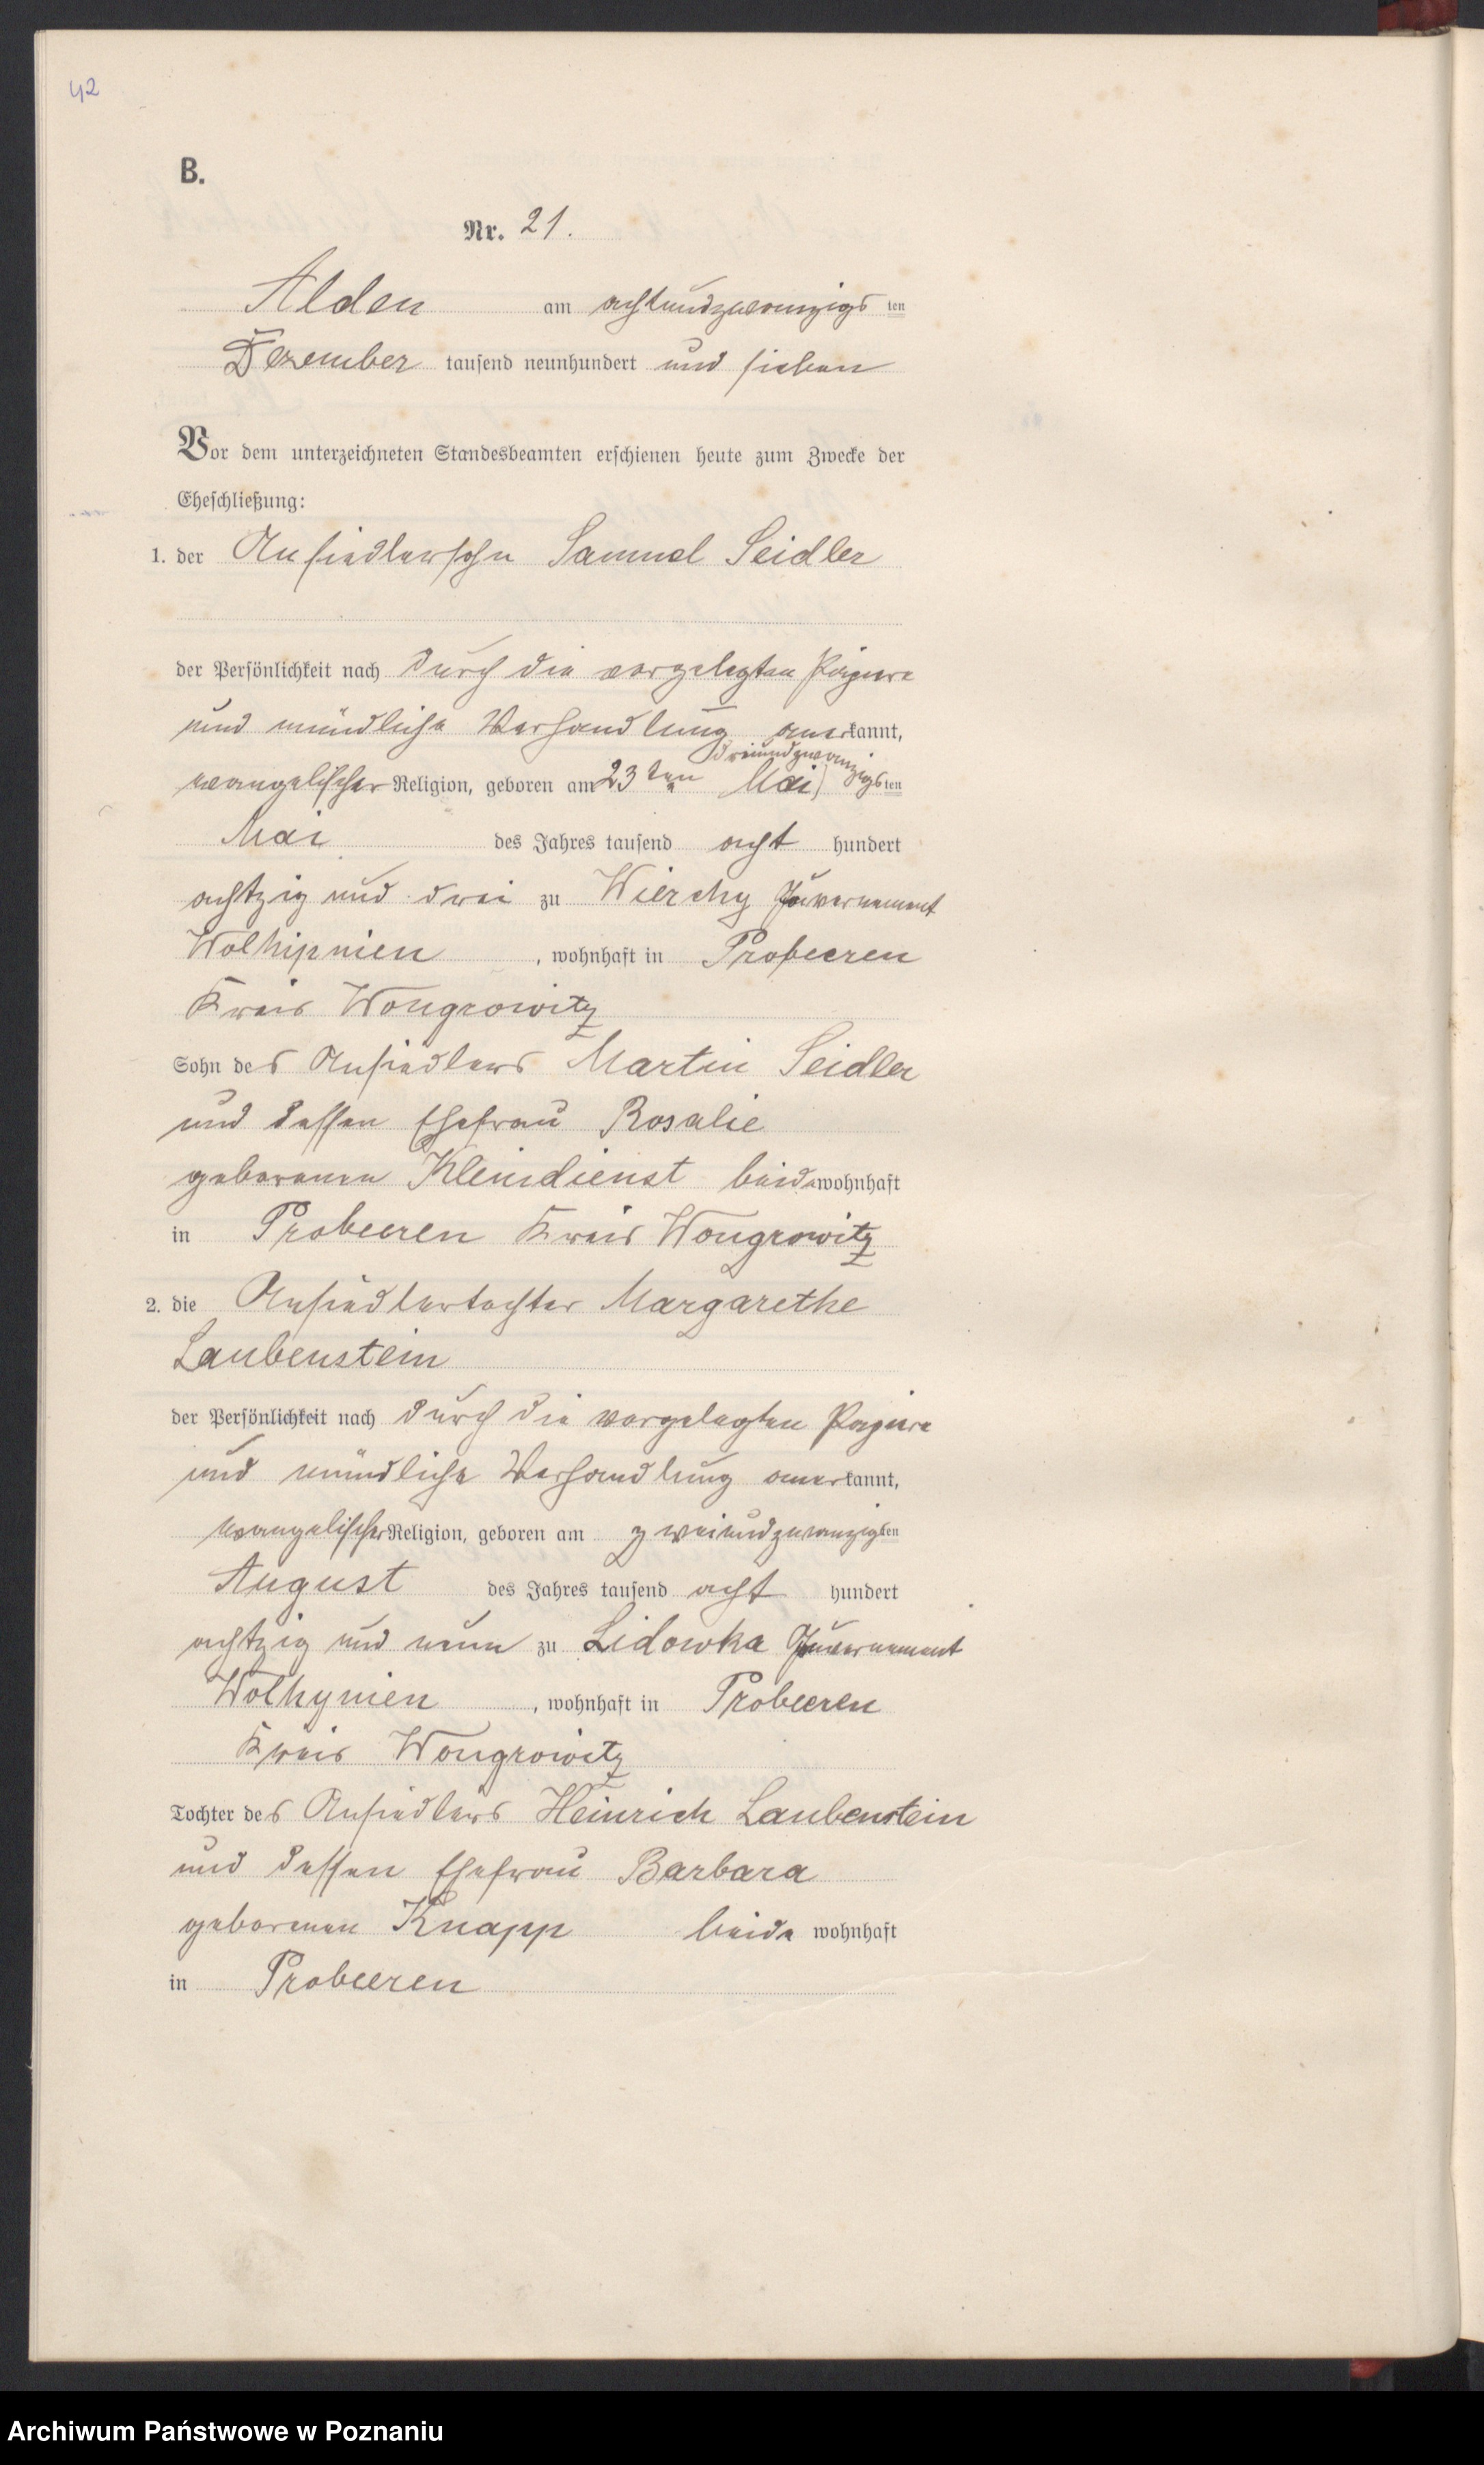 42
B.
Nr. 21.
Alden am achtundzwanzigsten
Dezember tausend neunhundert und sieben
Vor dem unterzeichneten Standesbeamten erschienen heute zum Zwecke der
Eheschließung:
1. der Ansiedlersohn Samuel Seidler
der Persönlichkeit nach durch die vorgelegten Papiere
und mündliche Verhandlung anerkannt,
dreiundzwanzigsten
evangelischer Religion, geboren am 23ten Mai
Mai des Jahres tausend acht hundert
achtzig und drei zu Wierchy Guvernement
Wolhipnien, wohnhaft in Probeeren
Kreis Wongrowitz
Sohn des Ansiedlers Martin Seidler
und dessen Ehefrau Rosalie
geborenen Kleindienst beide wohnhaft
in Probeeren Kreis Wongrowitz
2. die Ansiedlertochter Margarethe
Laubenstein
der Persönlichkeit nach durch die vorgelegten Papiere
und mündliche Verhandlung anerkannt,
evangelischer Religion, geboren am zweiundzwanzigsten
August des Jahres tausend acht hundert
achtzig und neun zu Lidowka Guvernement
Wolhynien, wohnhaft in Probeeren
Kreis Wongrowitz
Tochter des Ansiedlers Heinrich Laubenstein
und dessen Ehefrau Barbara
geborenen Knapp beide wohnhaft
in Probeeren
Archiwum Państwowe w Poznaniu